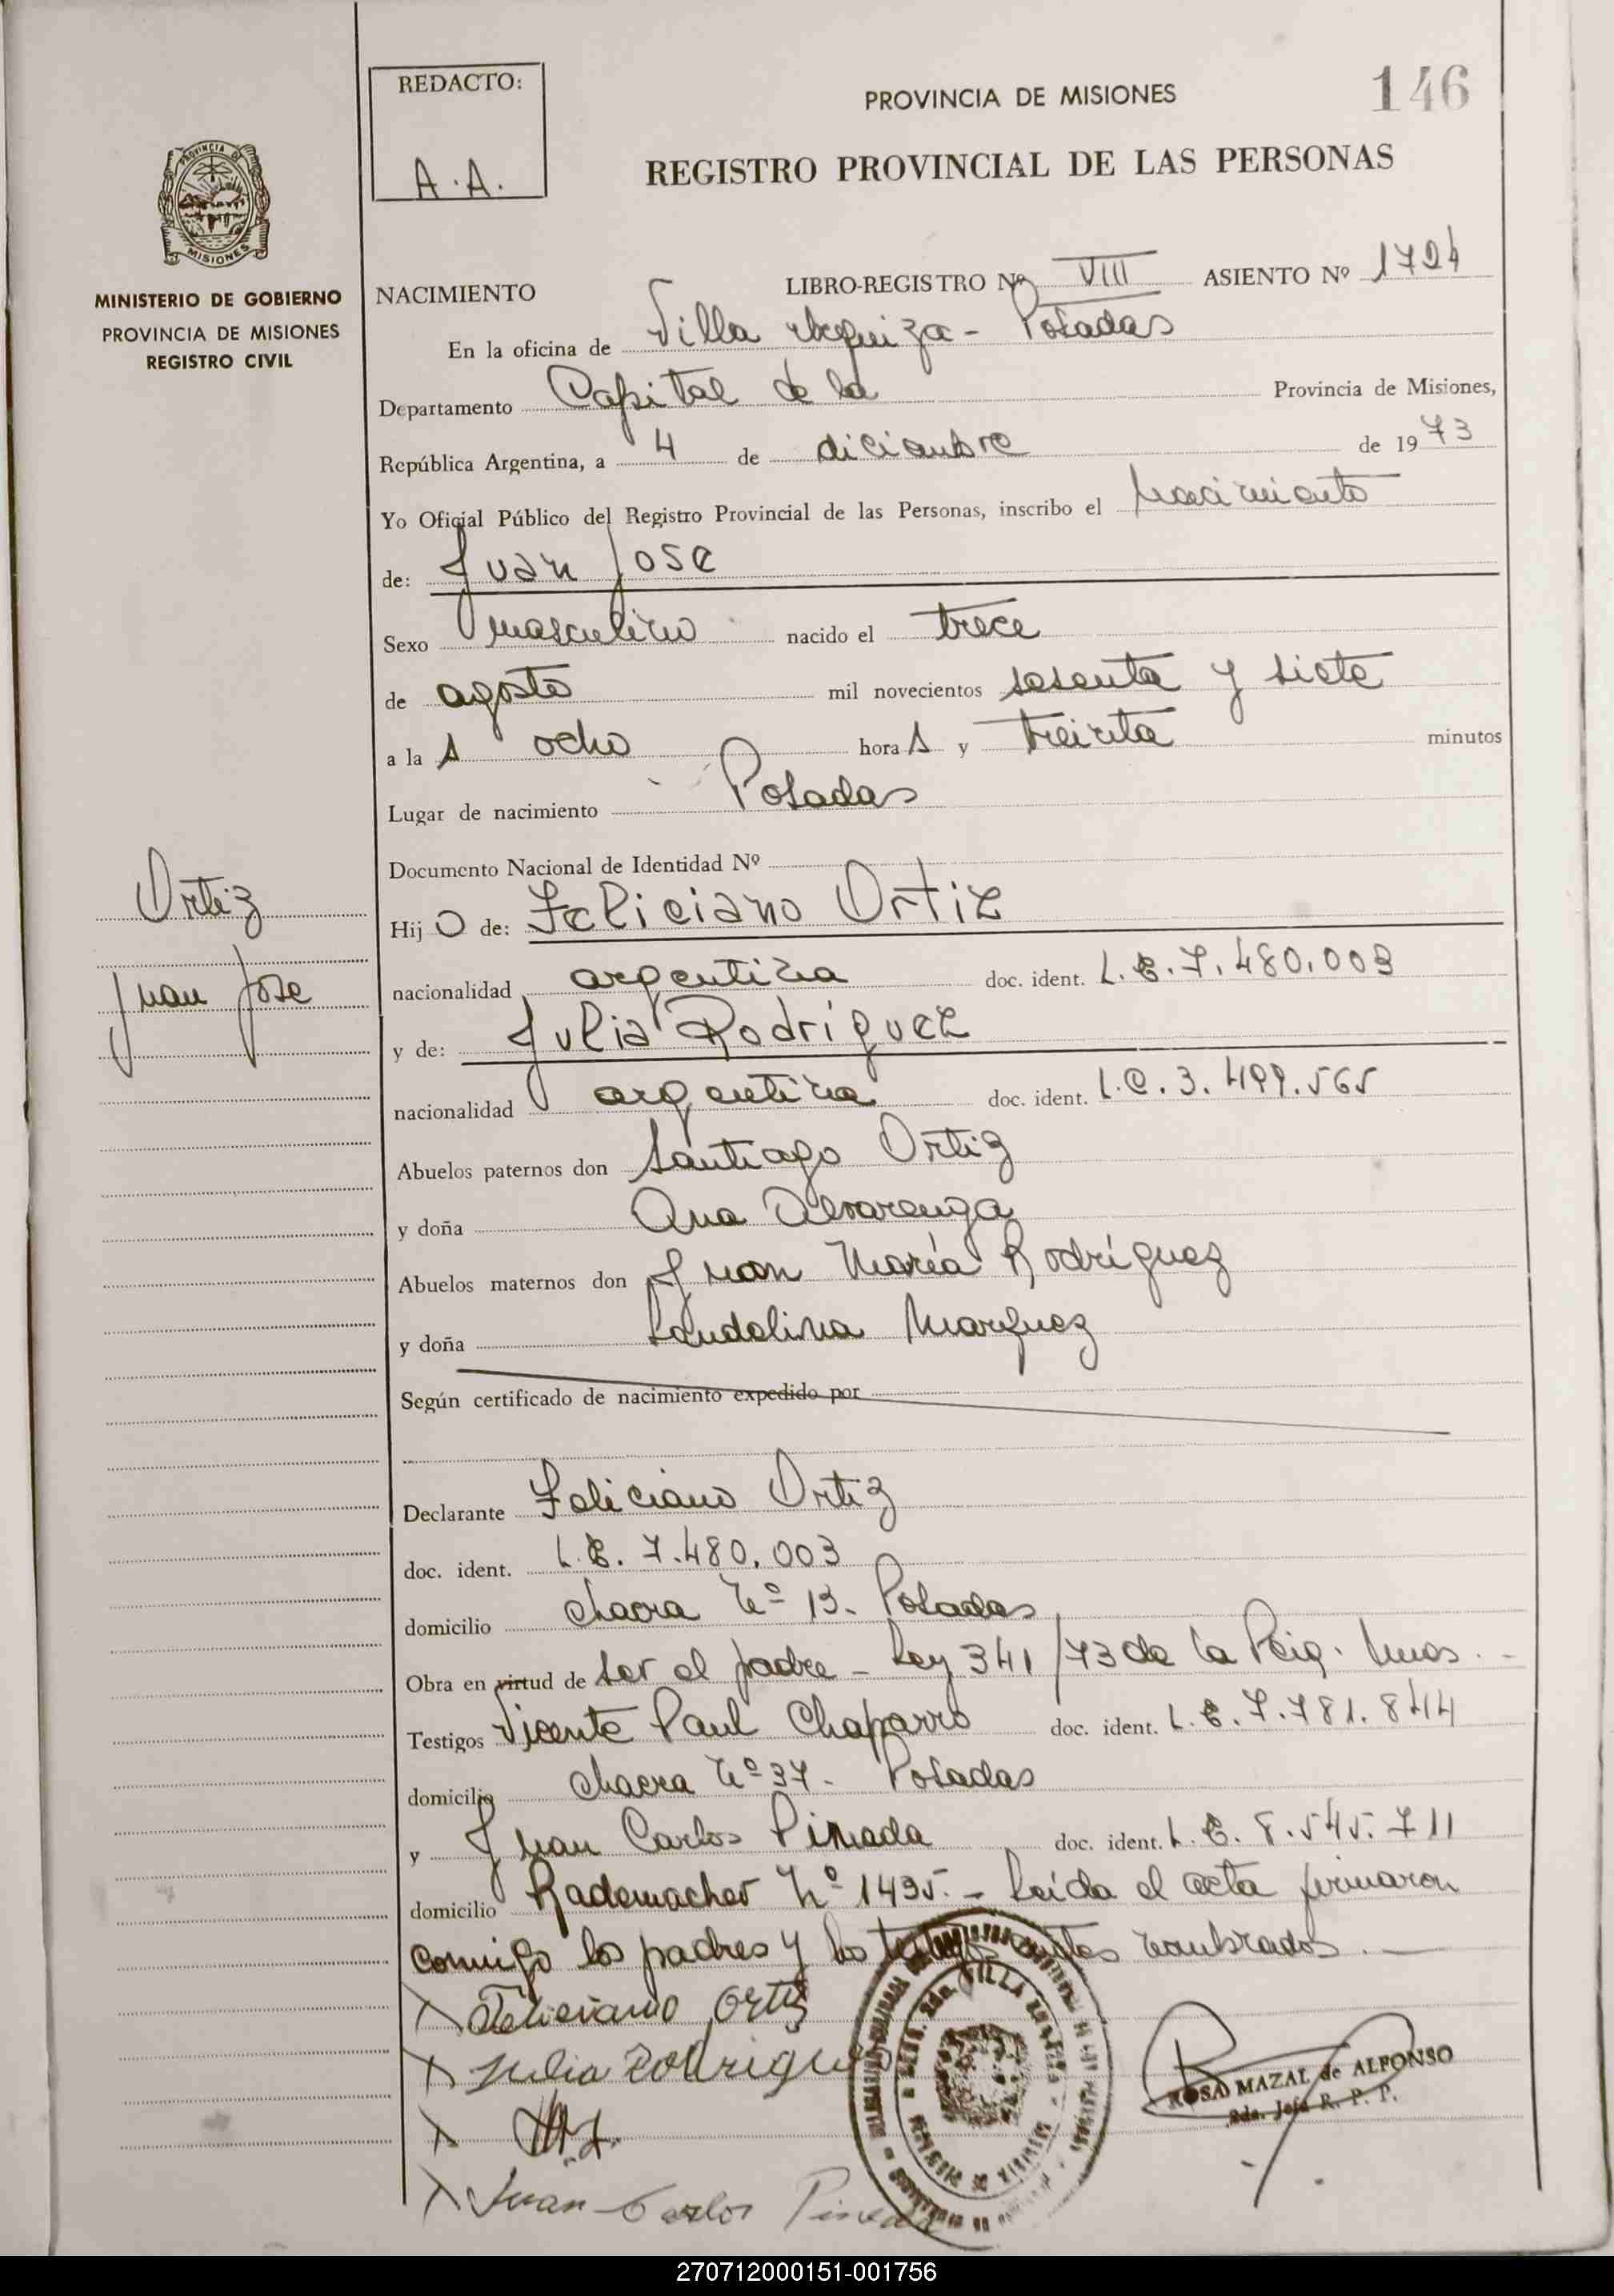 REDACTO:
A.A.
PROVINCIA DE MISIONES
146
REGISTRO PROVINCIAL DE LAS PERSONAS
PROVINCIA DE
MISIONES
MINISTERIO DE GOBIERNO
PROVINCIA DE MISIONES
REGISTRO CIVIL
NACIMIENTO LIBRO-REGISTRO Nº VIII ASIENTO Nº 1724
En la oficina de Villa Urquiza - Posadas
Departamento Capital de la Provincia de Misiones,
República Argentina, a 4 de diciembre de 1973
Yo Oficial Público del Registro Provincial de las Personas, inscribo el nacimiento
de: Juan Jose
Sexo masculino nacido el trece
de agosto mil novecientos sesenta y siete
a la s ocho hora s y treinta minutos
Lugar de nacimiento Posadas
Documento Nacional de Identidad Nº
Ortiz
Juan Jose
Hij O de: Feliciano Ortiz
nacionalidad argentina doc. ident. L.E. 7.480.003
y de: Julia Rodríguez
nacionalidad argentina doc. ident. L.C. 3.499.565
Abuelos paternos don Santiago Ortiz
y doña Ana Alvarenga
Abuelos maternos don Juan María Rodríguez
y doña Landolina Marquez
Según certificado de nacimiento expedido por
Declarante Feliciano Ortiz
doc. ident. L.E. 7.480.003
domicilio chacra Nº 13- Posadas
Obra en virtud de ser el padre - Ley 341/73 de la Pcia. Mnes. -
Testigos Vicente Paul Chaparro doc. ident. L.E. 7.781.844
domicilio chacra Nº 37- Posadas
y Juan Carlos Pineda doc. ident. L.E. 8.545.711
domicilio Rademacher Nº 1495.- Leída el acta firmaron
conmigo los padres y los testigos antes nombrados. -
X Feliciano Ortiz
X Julia Rodriguez
X
X Juan Carlos Pineda
ROSA MAZAL de ALFONSO
2da. Jefa R. P. P.
270712000151-001756